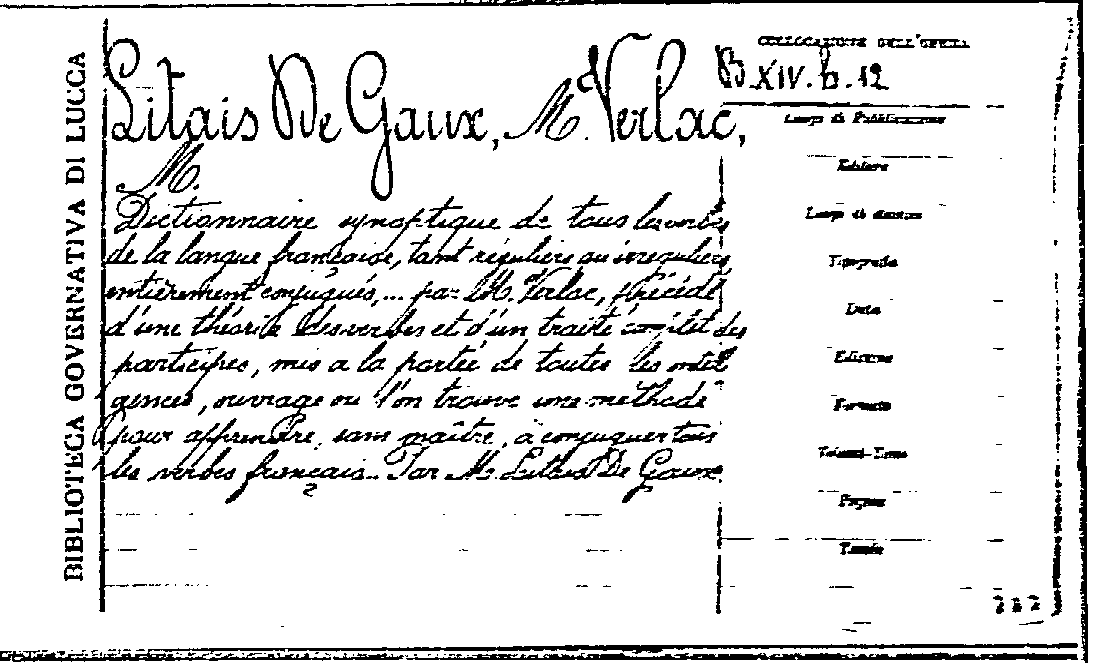 BIBLIOTECA GOVERNATIVA DI LUCCA
Litais De Gaux, M. Verlac,
M.
Dictionnaire synoptique de tous les verbes
de la langue française, tant réguliers qu'irreguliers
entièrement conjugués,... par M. Verlac, précédé
d'une théorie des verbes et d'un traité complet des
participes, mis a la portée de toutes les intel
gences, ouvrage ou l'on trouve une méthode
pour apprendre, sans maître, à conjuguer tous
les verbes français.. Par M. Litais De Gaux
COLLOCAZIONE DELL'OPERA
B. XIV. b. 12
Luogo di Pubblicazione
Editore
Luogo di stampa
Tipografia
Data
Edizione
Formato
Volumi-Tomo
Pagine
Tavole